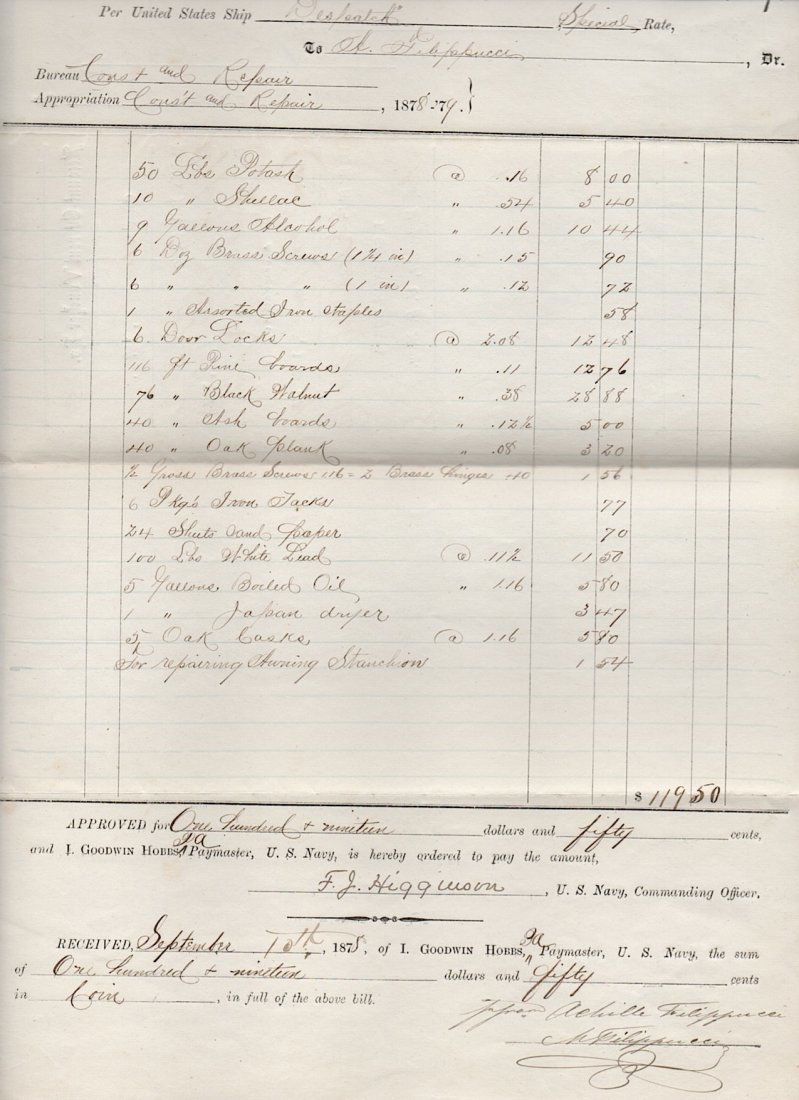 Per United States Ship Despatch Special Rate,
To A. Filippucci, Dr.
Bureau Const and Repair
Appropriation Const and Repair, 1878-'79.
50 Lbs Potash @ .16 8 00
10 " Shellac " .54 5 40
9 Gallons Alcohol " 1.16 10 44
6 Doz Brass Screws (1¼ in) " .15 90
6 " " " (1 in) " .12 72
1 " Assorted Iron staples 58
6 Door Locks @ 2.08 12 48
116 ft Pine boards " .11 12 76
76 " Black Walnut " .38 28 88
40 " Ash boards " .12½ 5 00
40 " Oak plank " .08 3 20
½ Gross Brass Screws 1.16 = 2 Brass hinges .40 1 56
6 Pkg's Iron Tacks 77
24 Sheets Sand paper 70
100 Lbs White Lead @ .11½ 11 50
5 Gallons Boiled Oil " 1.16 5 80
1 " Japan dryer 3 47
5 Oak Casks @ 1.16 5 80
For repairing Awning Stanchion 1 54
$ 119 50
APPROVED for One hundred + nineteen dollars and fifty cents,
and I. GOODWIN HOBBS, Pa Paymaster, U. S. Navy, is hereby ordered to pay the amount,
F. J. Higginson, U. S. Navy, Commanding Officer.
RECEIVED, September 10th, 1878, of I. GOODWIN HOBBS, Pa Paymaster, U. S. Navy, the sum
of One hundred + nineteen dollars and fifty cents
in Coin, in full of the above bill.
Achille Filippucci
M Filippucci